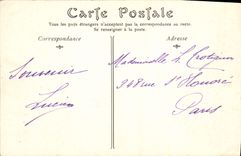 Carte Postale
Tous les pays étrangers n'acceptent pas la correspondance au recto.
Se renseigner à la poste.
Correspondance
Adresse
Souvenir
Lucien
Mademoiselle L. Crétignon
348 rue St Honoré
Paris